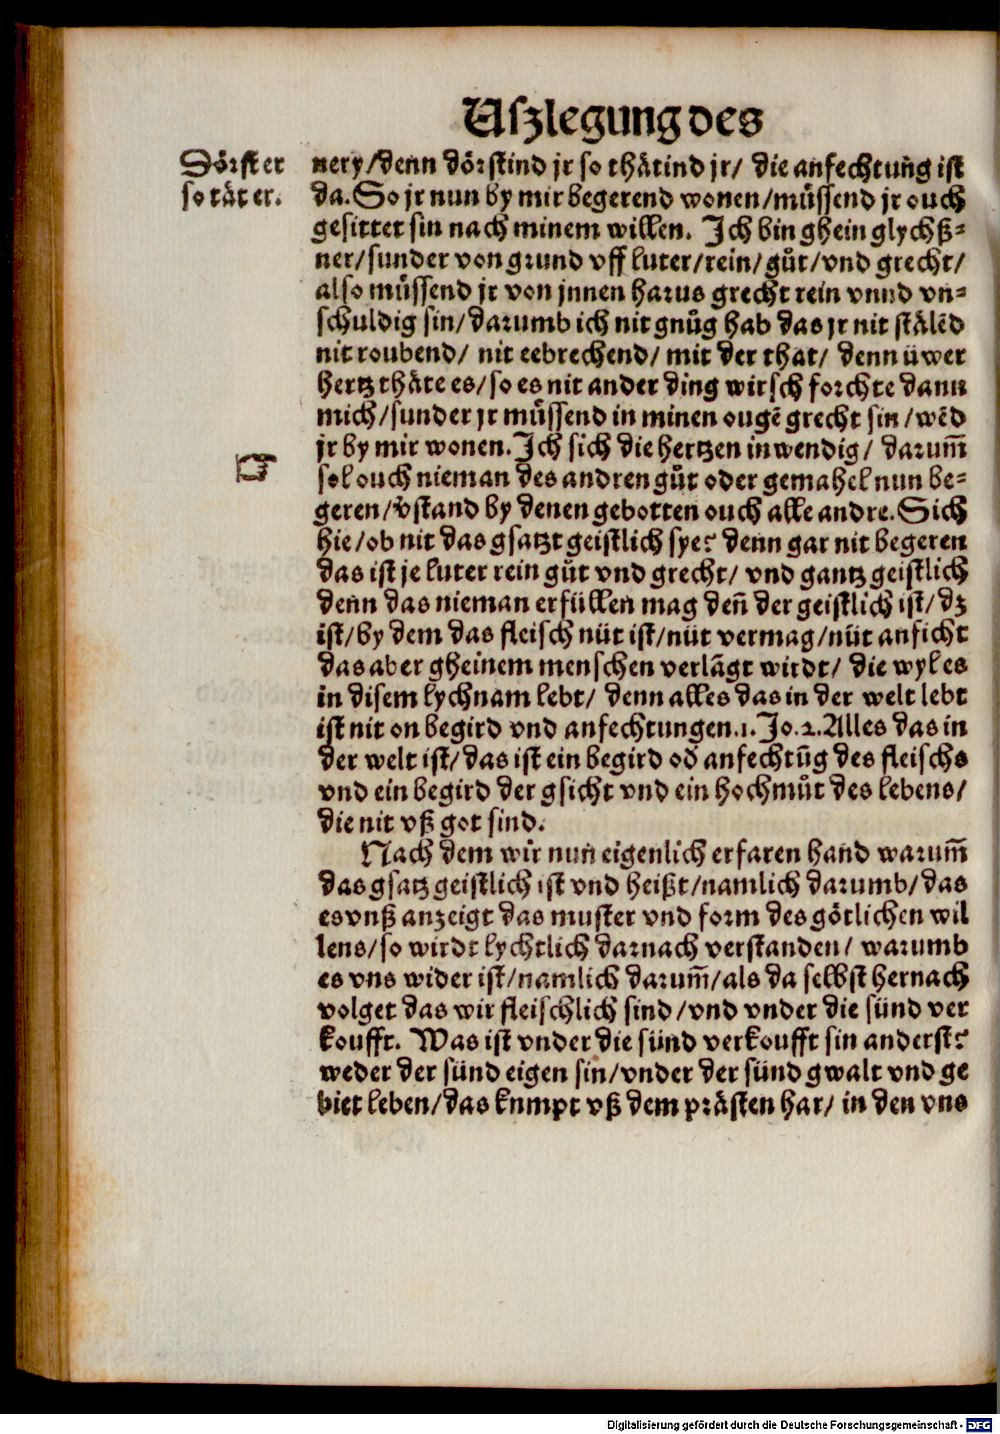 Uſzlegung des
Dörfft er
ſo tät er.
nery/denn dörſtind jr ſo thätind jr/ die anfechtung iſt
da. So jr nun by mir begerend wonen/müſſend jr ouch
geſittet ſin nach minem willen. Ich bin ghein glychß⸗
ner/ſunder von grund vff luter/rein/gůt/vnd grecht/
alſo müſſend jr von jnnen harus grecht rein vnnd vn⸗
ſchuldig ſin/darumb ich nit gnůg hab das jr nit ſtälēd
nit roubend/ nit eebrechend/ mit der that/ denn üwer
hertz thäte es/ſo es nit ander ding wirſch forchte dann
mich/ſunder jr müſſend in minen ougē grecht ſin/wēd
jr by mir wonen. Ich ſich die hertzen inwendig/ darum̄
☞
ſol ouch nieman des andren gůt oder gemahel nun be⸗
geren/v̄ſtand by denen gebotten ouch alle andre. Sich
hie/ob nit das gſatzt geiſtlich ſye? denn gar nit begeren
das iſt je luter rein gůt vnd grecht/ vnd gantz geiſtlich
denn das nieman erfüllen mag den̄ der geiſtlich iſt/dz
iſt/by dem das fleiſch nüt iſt/nüt vermag/nüt anficht
das aber gheinem menſchen verlāgt wirdt/ die wyl es
in diſem lychnam lebt/ denn alles das in der welt lebt
iſt nit on begird vnd anfechtungen.1.Jo.2.Alles das in
der welt iſt/das iſt ein begird od̄ anfechtūg des fleiſchs
vnd ein begird der gſicht vnd ein hochmůt des lebens/
die nit vß got ſind.
Nach dem wir nun eigenlich erfaren hand warum̄
das gſatz geiſtlich iſt vnd heißt/namlich darumb/das
es vnß anzeigt das muſter vnd form des götlichen wil
lens/ſo wirdt lychtlich darnach verſtanden/ warumb
es vns wider iſt/namlich darum̄/als da ſelbſt hernach
volget das wir fleiſchlich ſind/vnd vnder die ſünd ver
koufft. Was iſt vnder die ſünd verkoufft ſin anderſt?
weder der ſünd eigen ſin/vnder der ſünd gwalt vnd ge
biet leben/das kumpt vß dem präſten har/ in den vns
Digitalisierung gefördert durch die Deutsche Forschungsgemeinschaft - DFG